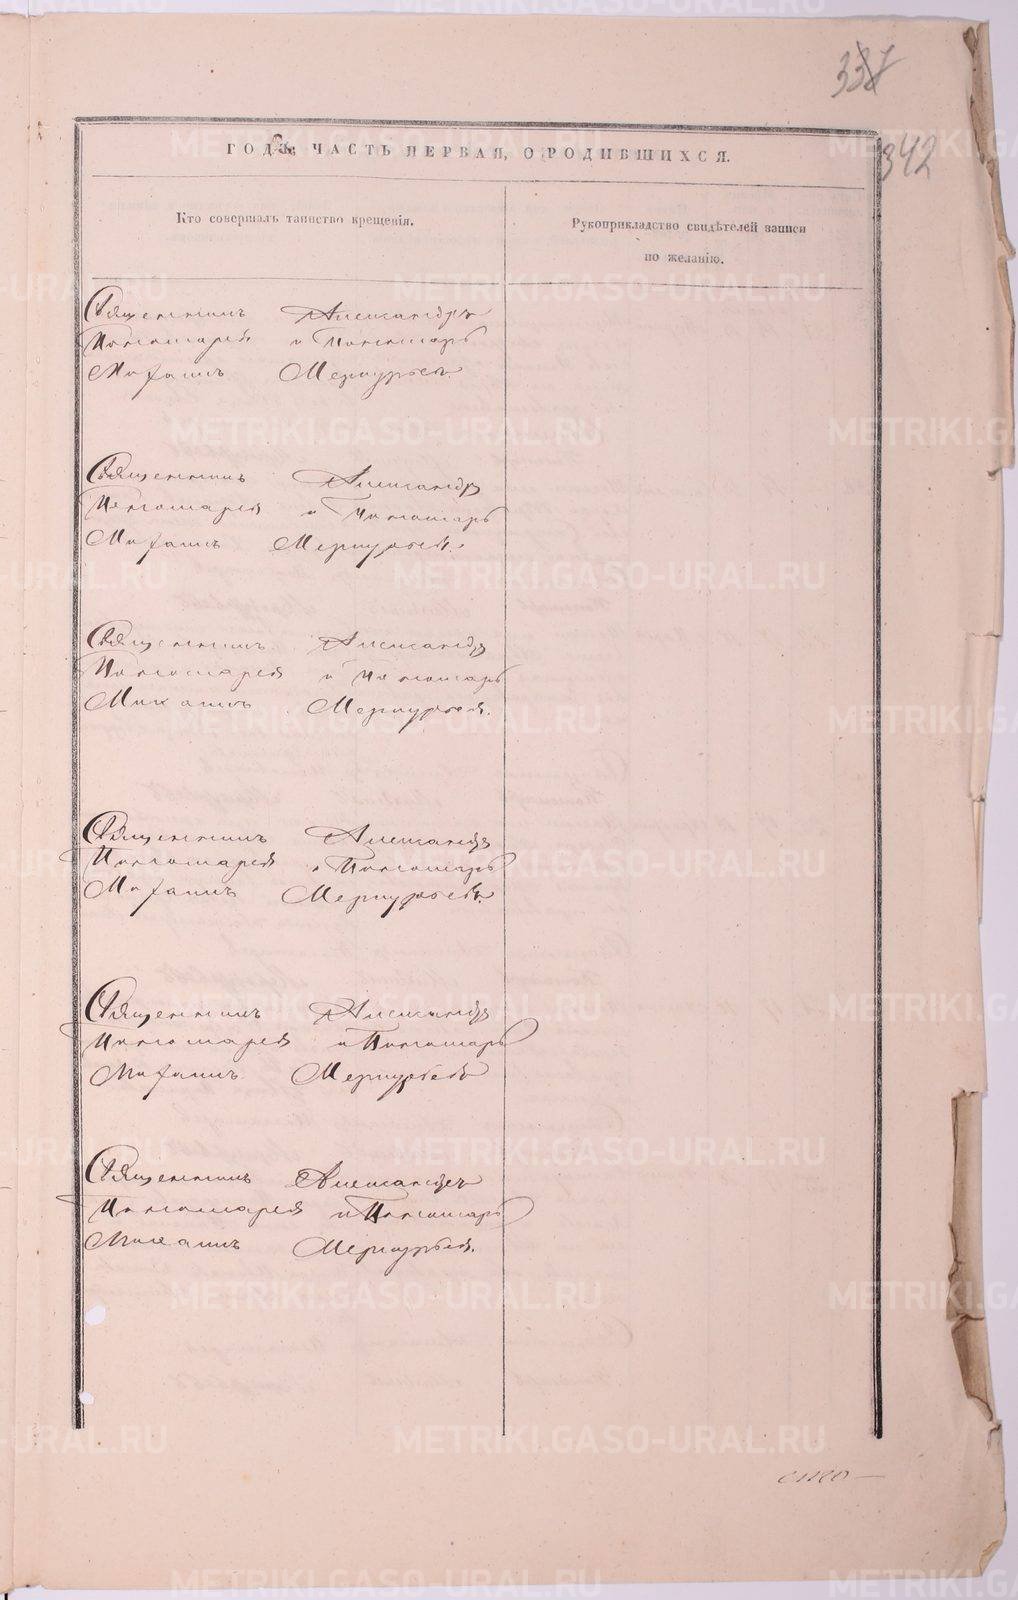 337
342
ГОДЪ, ЧАСТЬ ПЕРВАЯ, О РОДИВШИХСЯ.
Кто совершалъ таинство крещенія.
Рукоприкладство свидѣтелей записи
по желанію.
Священникъ Александръ
Пономаревъ и Пономарь
Михаилъ Меркурьевъ.
Священникъ Александръ
Пономаревъ и Пономарь
Михаилъ Меркурьевъ.
Священникъ Александръ
Пономаревъ и Пономарь
Михаилъ Меркурьевъ.
Священникъ Александръ
Пономаревъ и Пономарь
Михаилъ Меркурьевъ.
Священникъ Александръ
Пономаревъ и Пономарь
Михаилъ Меркурьевъ
Священникъ Александръ
Пономаревъ и Пономарь
Михаилъ Меркурьевъ.
METRIKI.GASO-URAL.RU